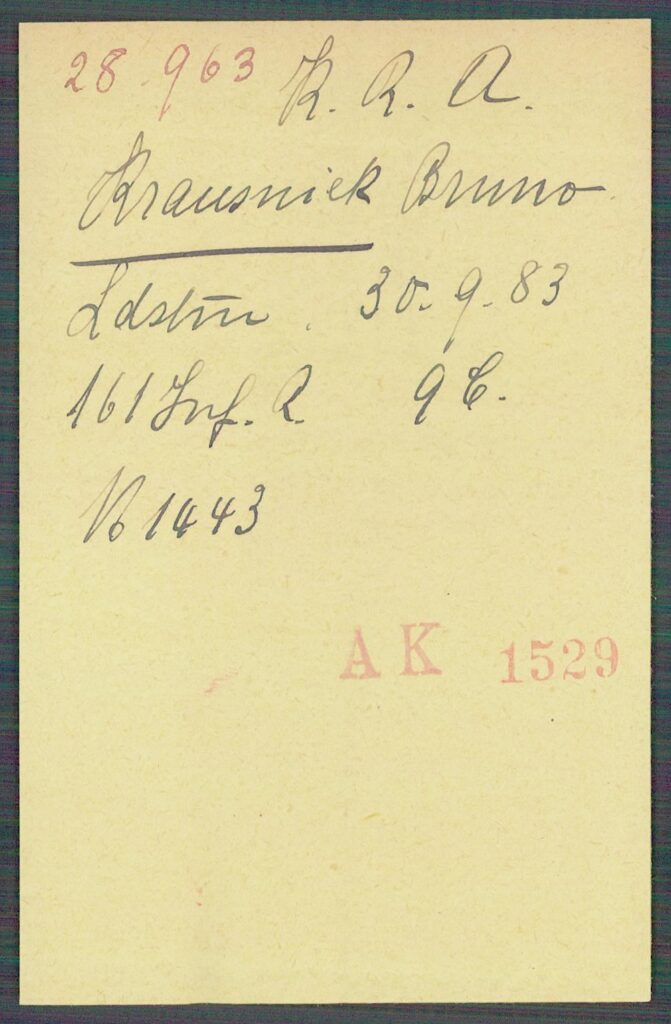 28.963 K. R. A.
Krausniek Bruno
Ldstm̄. 30.9.83
161 Inf. R. 9 C.
N 1443
AK 1529